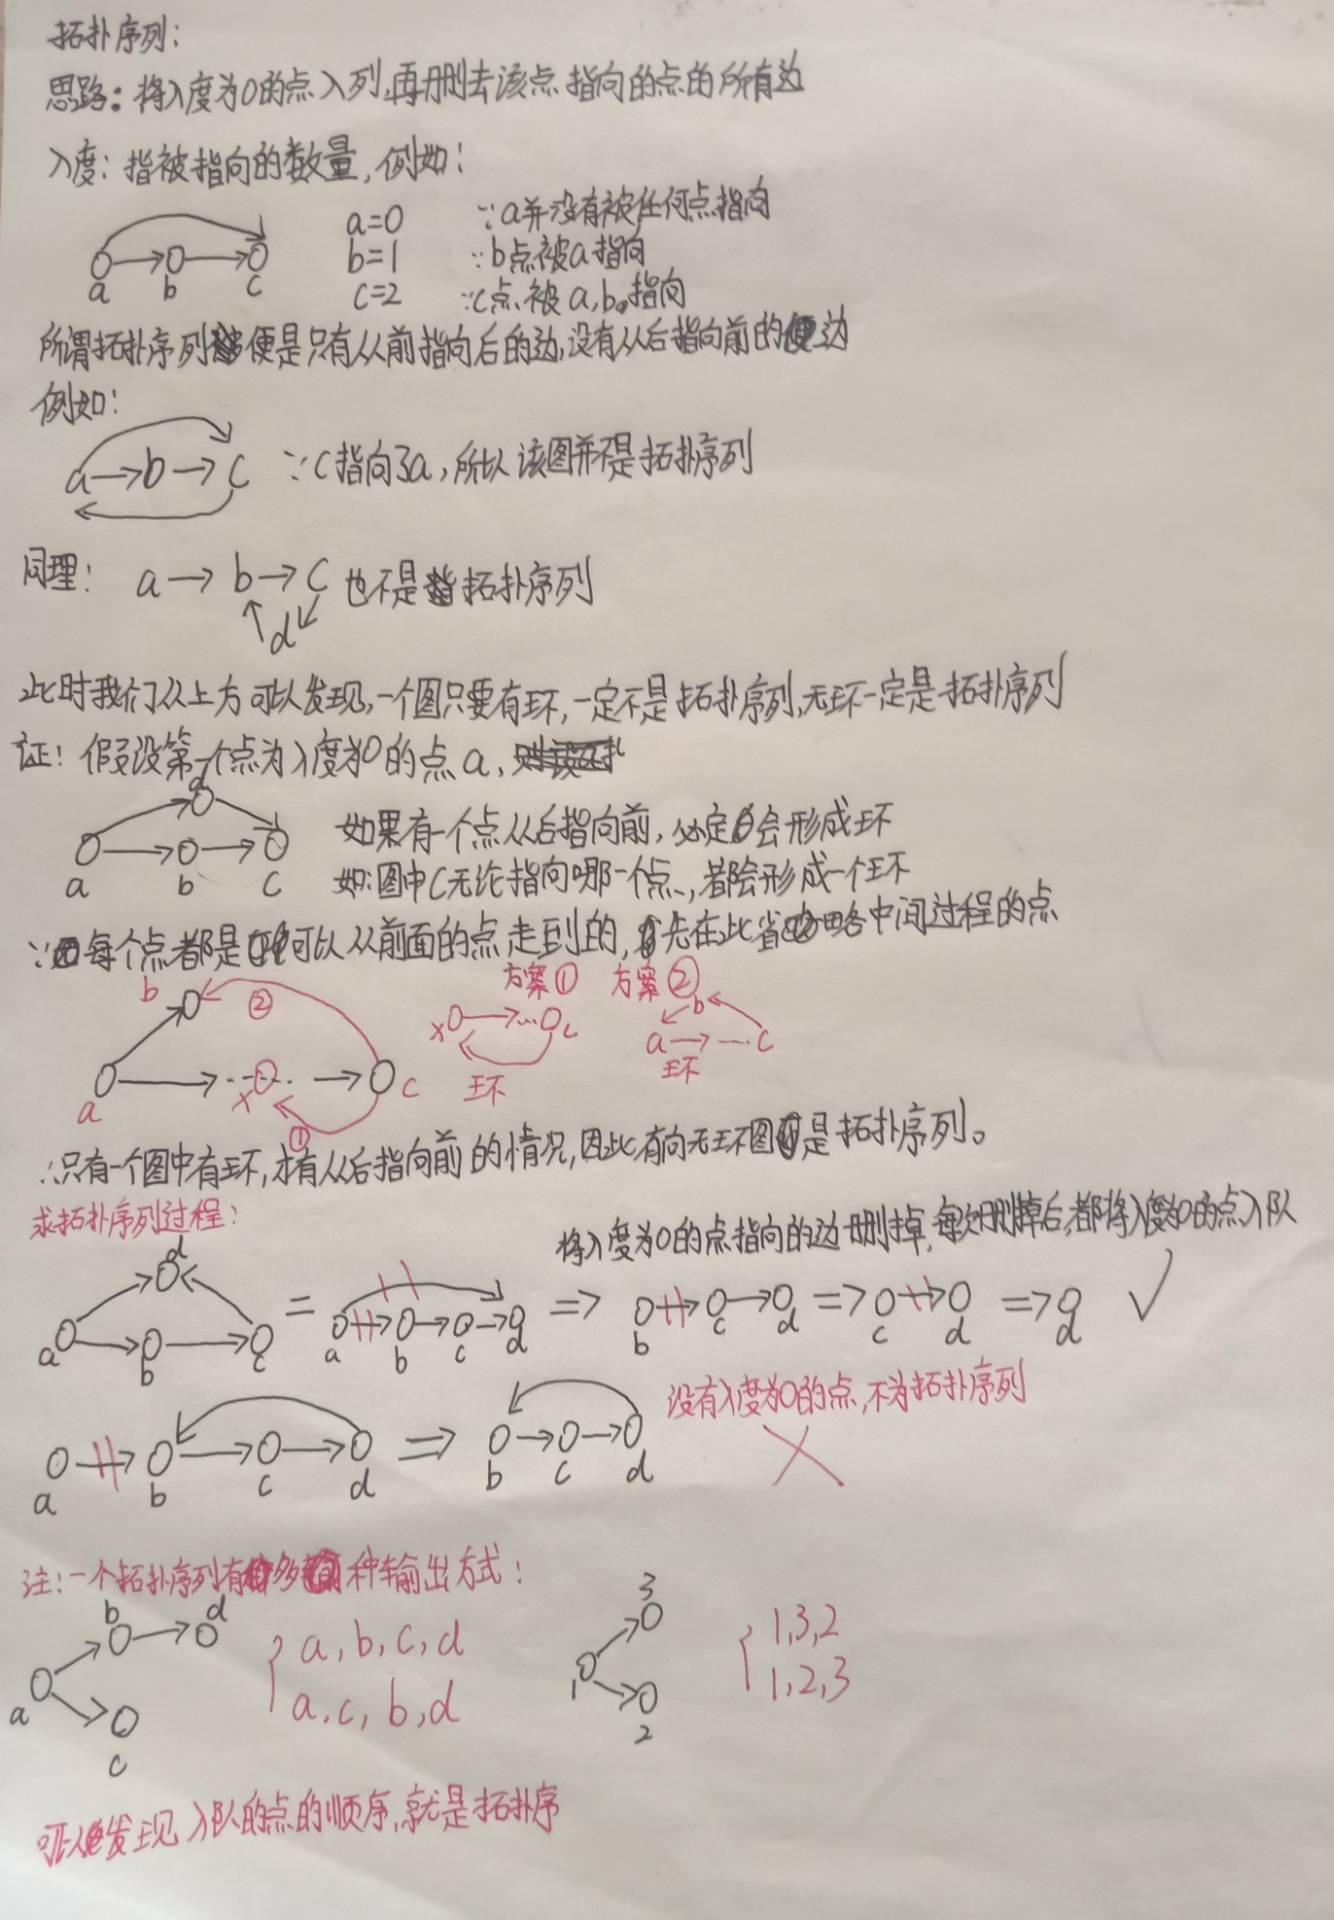 拓扑序列:
思路:将入度为0的点入列,再删去该点指向的点的所有边
入度:指被指向的数量,例如:
a b c
a=0 ∵a并没有被任何点指向
b=1 ∵b点被a指向
c=2 ∵c点被a,b。指向
所谓拓扑序列便是只有从前指向后的边,没有从后指向前的边
例如:
a b c ∵c指向了a,所以该图并不是拓扑序列
同理: a b c 也不是拓扑序列
d
此时我们从上方可以发现,一个图只要有环,一定不是拓扑序列,无环一定是拓扑序列
证:假设第一个点为入度为0的点a,
d
a b c
如果有一个点从后指向前,必定会形成环
如:图中c无论指向哪一个点,都会形成一个环
∵每个点都是可以从前面的点走到的,先在此省略中间过程的点
b ② 方案① 方案②
x ... c b
a ... c
a ... x c 环 环
①
∴只有一个图中有环,才有从后指向前的情况,因此有向无环图是拓扑序列。
求拓扑序列过程:
将入度为0的点指向的边删掉,每次删掉后,都将入度为0的点入队
d
a b c = a b c d => b c d => c d => d ✓
a b c d => b c d 没有入度为0的点,不为拓扑序列
✗
注:一个拓扑序列有多种输出方式:
b d
a
c
a,b,c,d
a,c,b,d
3
1
2
1,3,2
1,2,3
可以发现入队的点的顺序,就是拓扑序